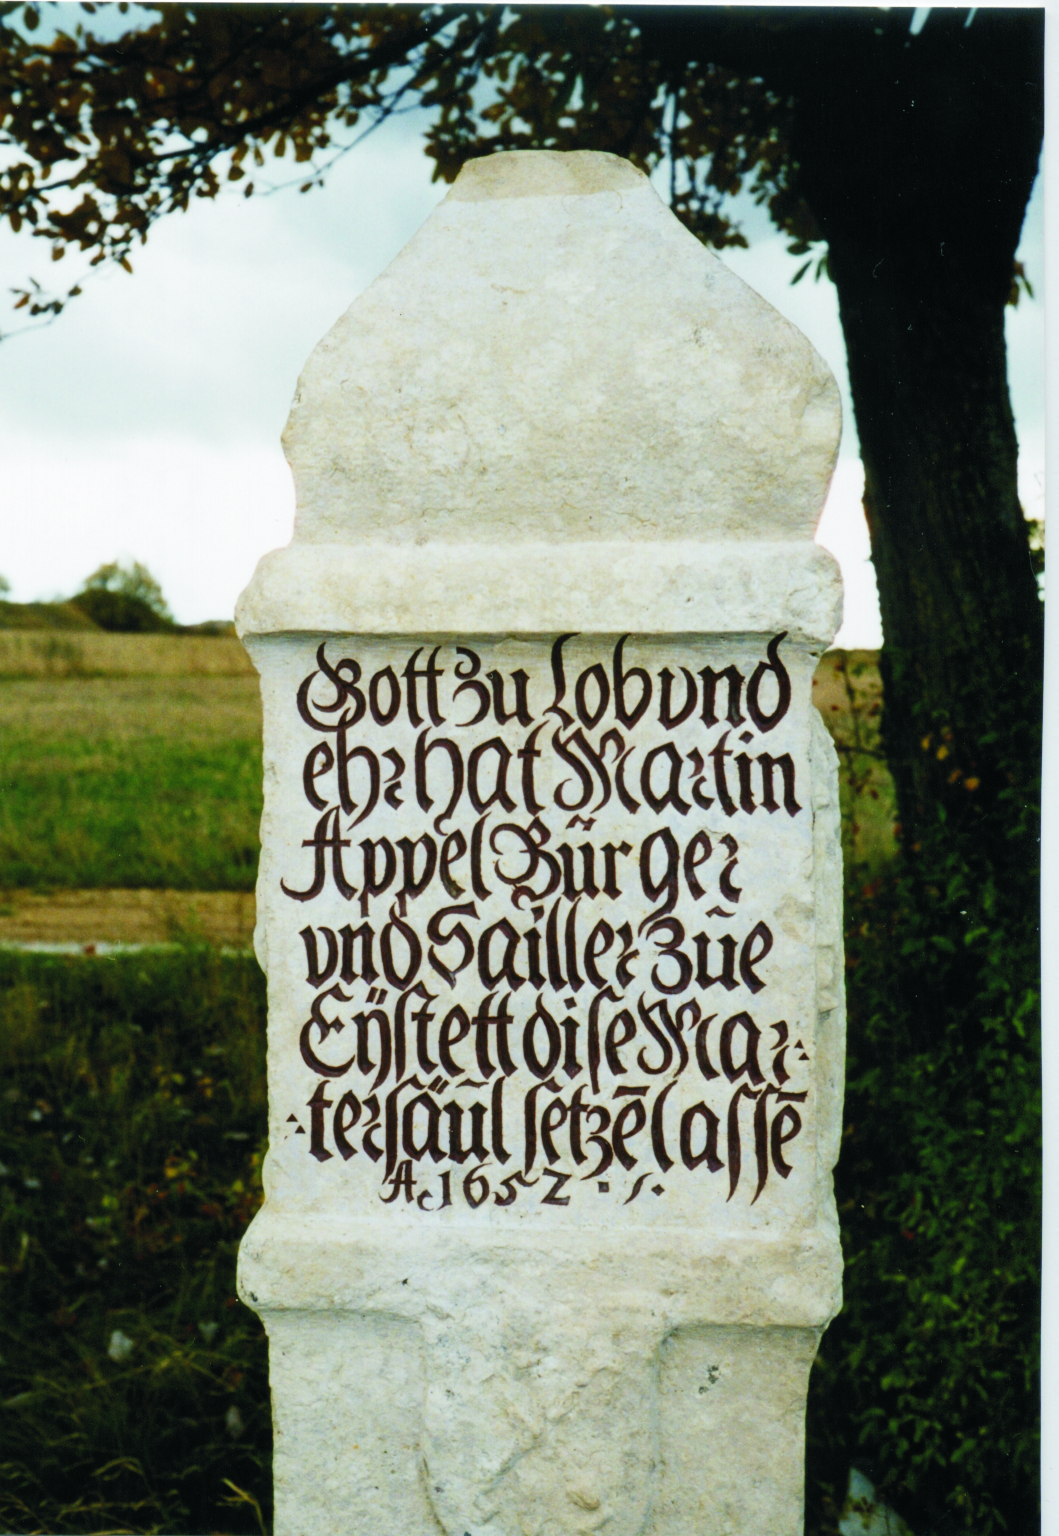 Gott zu lob vnd
ehr hat Martin
Appel Bürger
vnd Sailler zūe
Eÿſtett diſe Mar-
terſäūl ſetzē laſſē
A. 1652